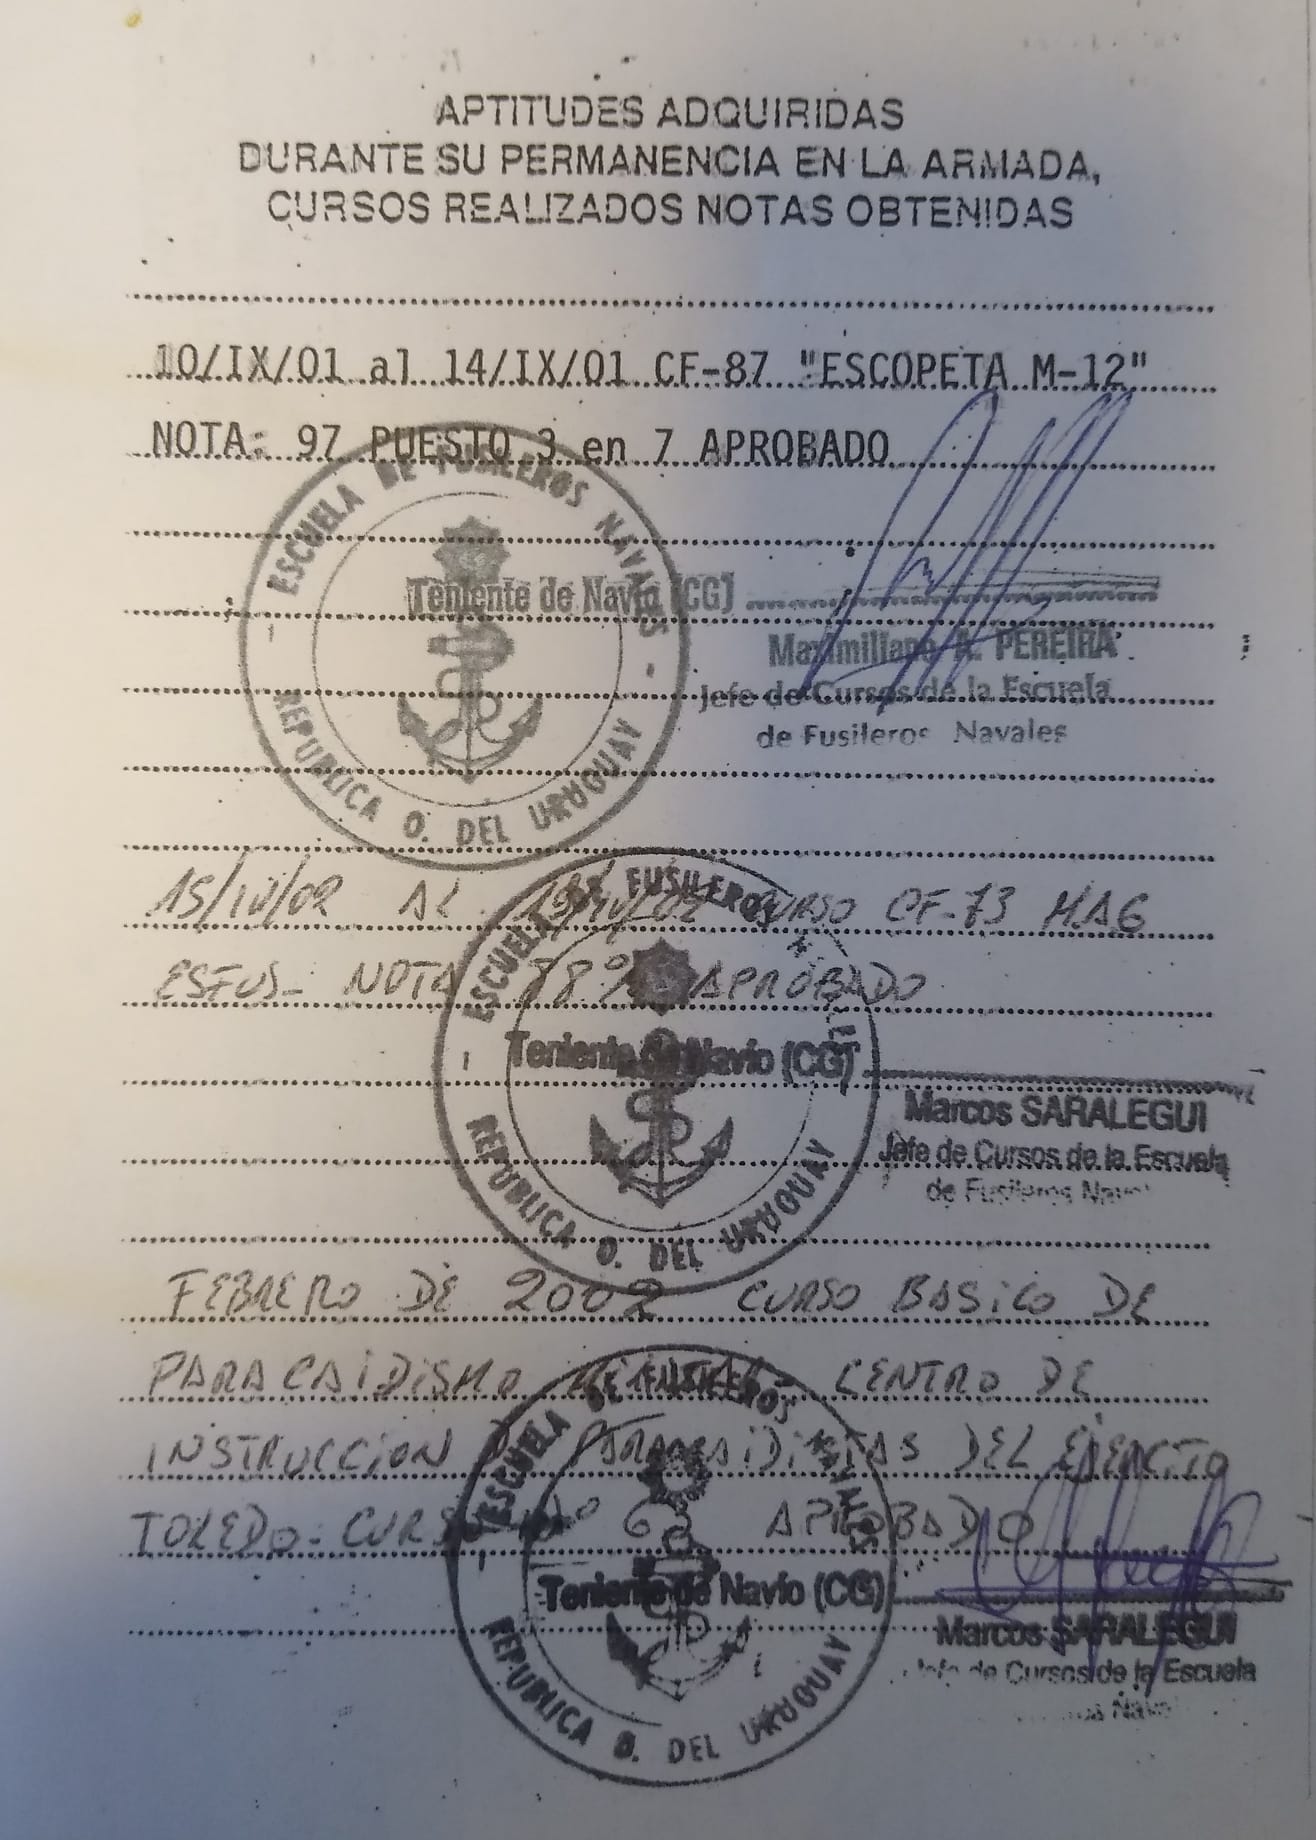 APTITUDES ADQUIRIDAS
DURANTE SU PERMANENCIA EN LA ARMADA,
CURSOS REALIZADOS NOTAS OBTENIDAS
10/IX/01 al 14/IX/01 CF-87 "ESCOPETA M-12"
NOTA: 97 PUESTO 3 en 7 APROBADO
ESCUELA DE FUSILEROS NAVALES
REPUBLICA O. DEL URUGUAY
Teniente de Navío (CG)
Maximiliano A. PEREIRA
Jefe de Cursos de la Escuela
de Fusileros Navales
15/IV/02 AL 19/IV/02 CURSO CF-73 MAG
ESFUS- NOTA 88% APROBADO
ESCUELA DE FUSILEROS
REPUBLICA O. DEL URUGUAY
Teniente de Navío (CG)
Marcos SARALEGUI
Jefe de Cursos de la Escuela
de Fusileros
FEBRERO DE 2002 CURSO BASICO DE
PARACAIDISMO CENTRO DE
INSTRUCCION PARACAIDISTAS DEL EJERCITO
TOLEDO- APROBADO
ESCUELA DE FUSILEROS NAVALES
REPUBLICA O. DEL URUGUAY
Teniente de Navío (CG)
Marcos SARALEGUI
Jefe de Cursos de la Escuela